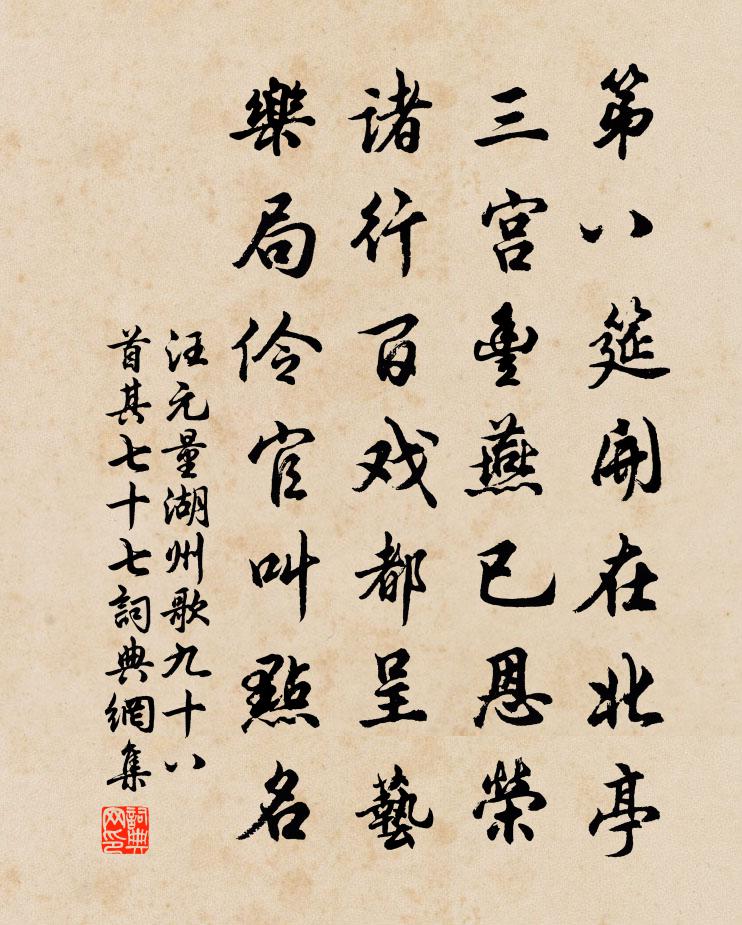 第八筵開在北亭
三宮豊燕已恩榮
諸行百戏都呈藝
樂局伶官叫點名
汪元量湖州歌九十八
首其七十七詞典網集
詞典网印